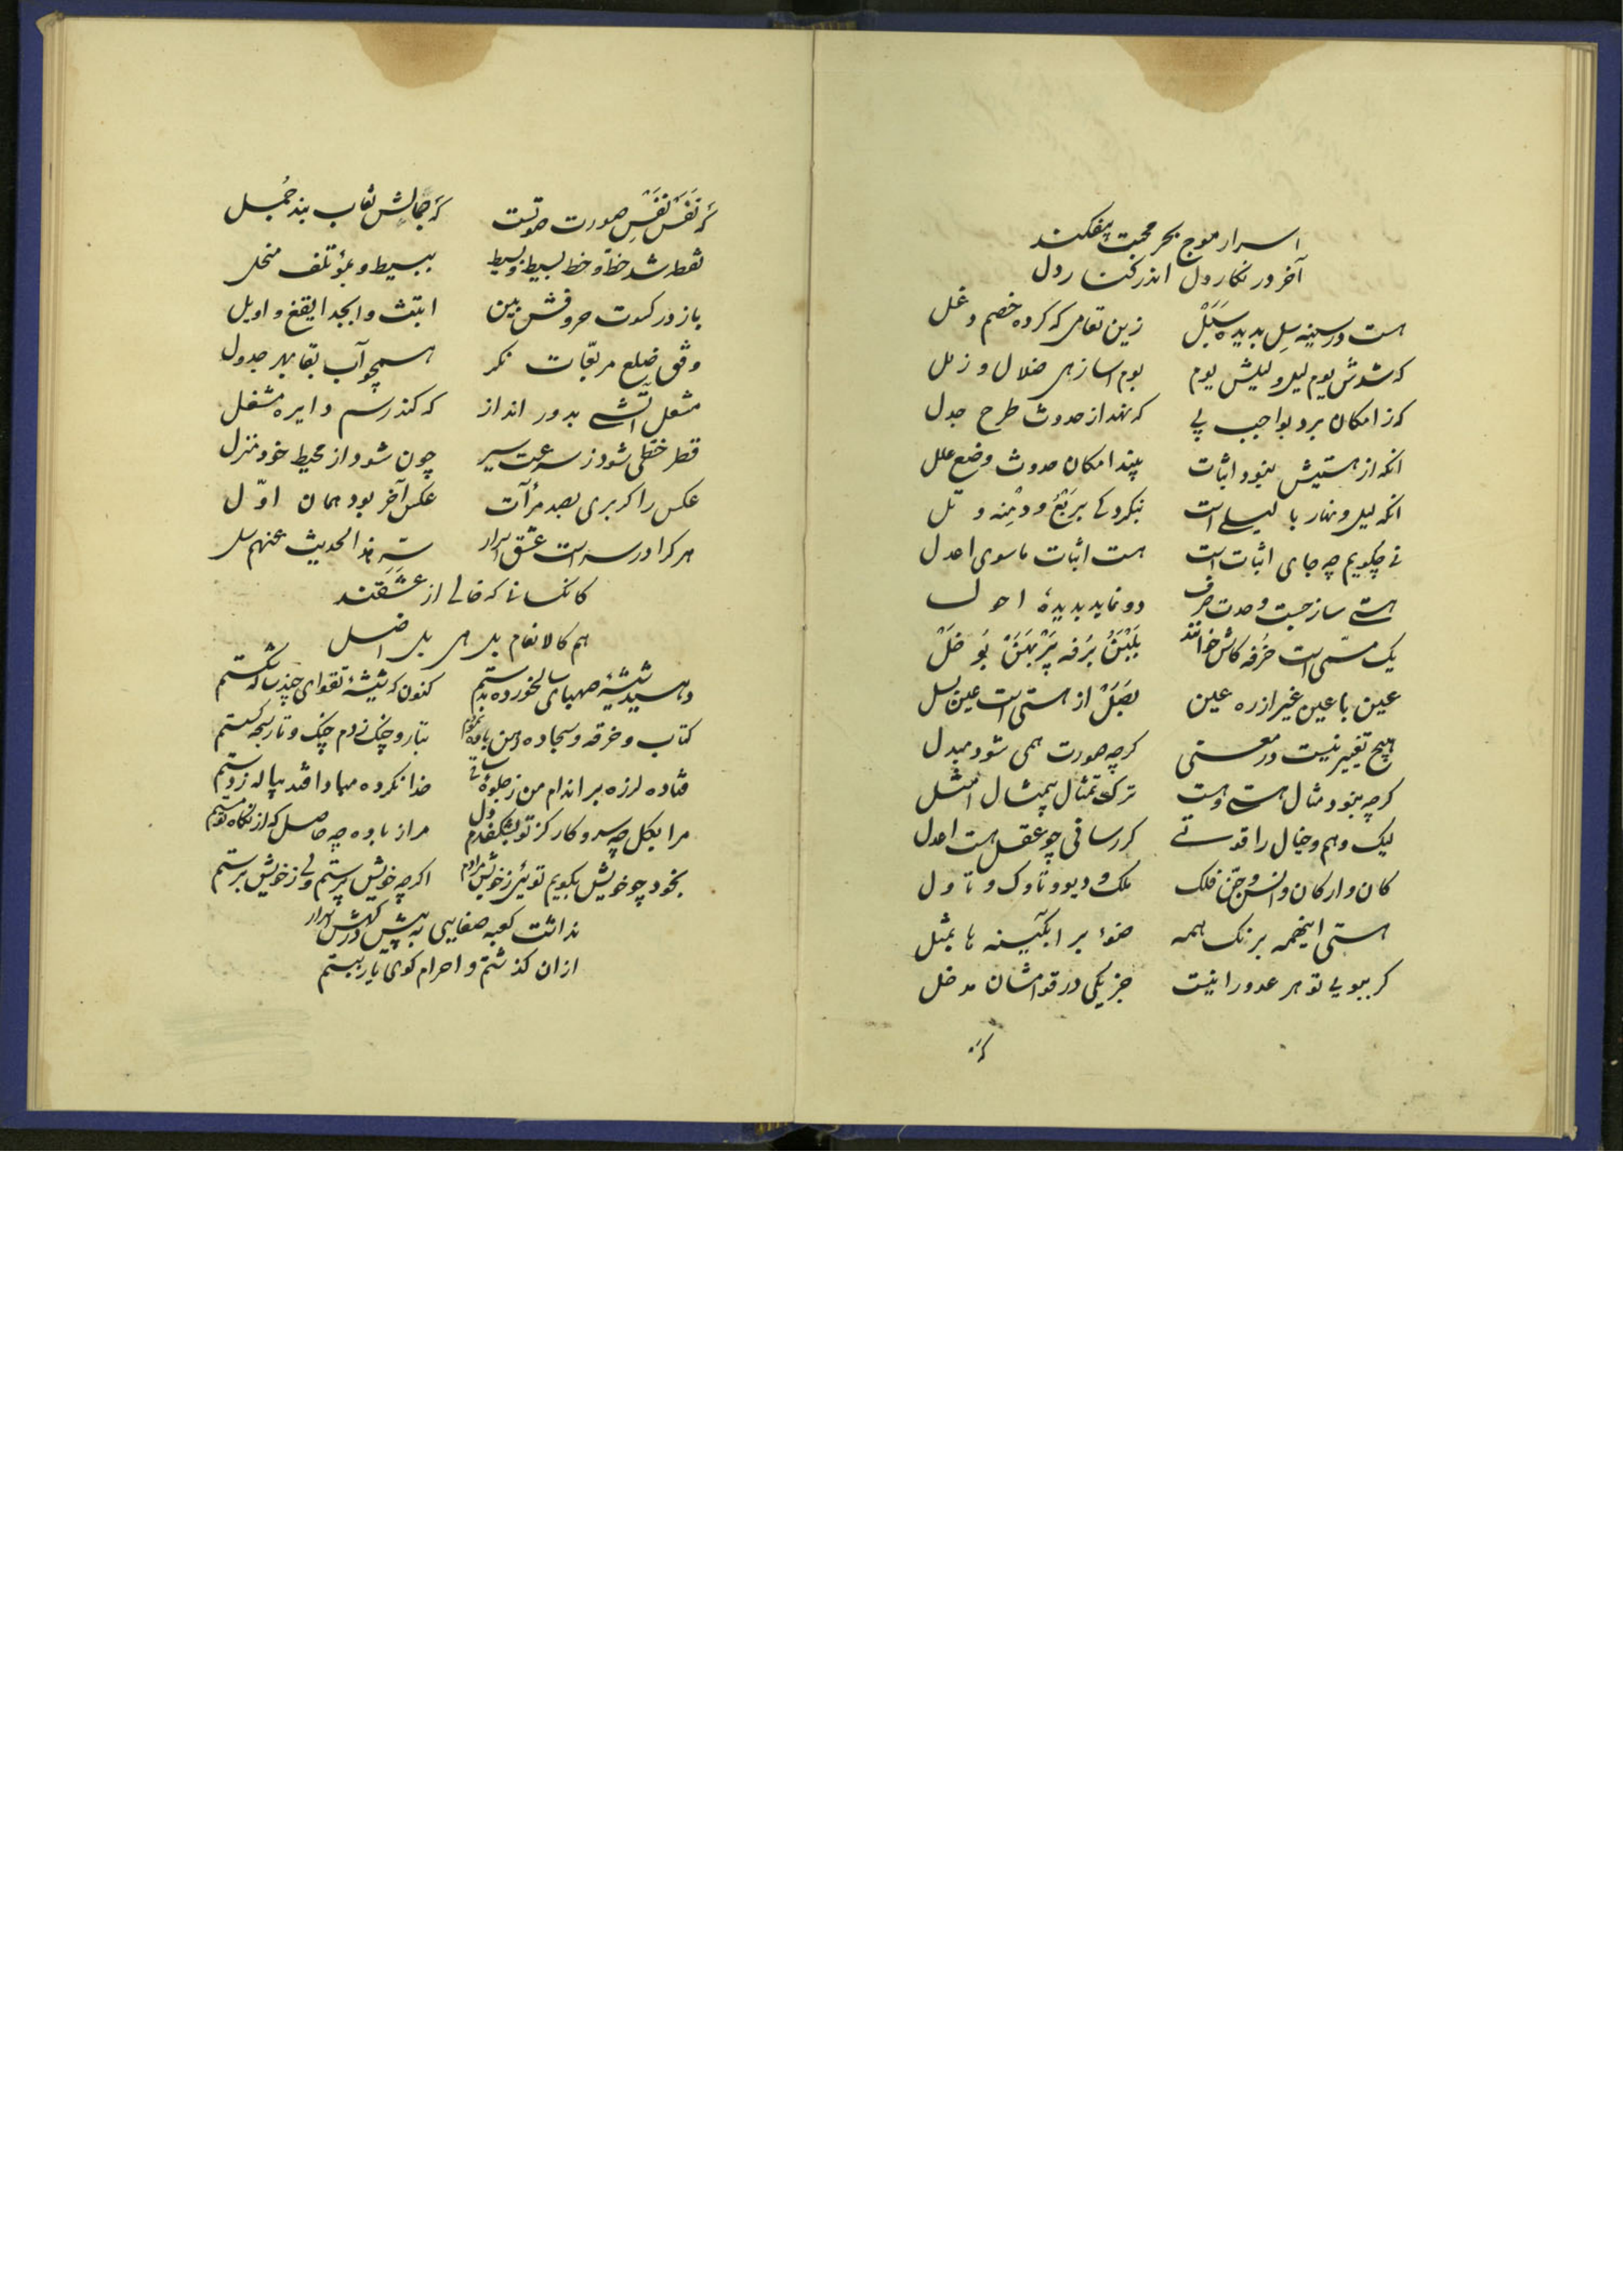 اسرار موج بحر محبت بیفکند
آخر در نگار دل اندر کنار دل
هست در سینه سِل بدیده سَبَل زین تعامی که کرده خصم دغل
که شدش یوم لیل و لیلش یوم بوم آسا زهی ضلال و زلل
که ز امکان برد بواجب پی که نهد از حدوث طرح جدل
انکه از هستیش نبود اثبات بیند امکان حدوث وضع علل
انکه لیل و نهار با لیلی است ننکرد کی بربع و دِمنه و تل
نی چکویم چه جای اثبات است هست اثبات ماسوی اعدل
هستی ساز جست وحدت صرف دو نماید بدیدهٔ احول
یک مسمی است خُرفه کاش خوانند بَلبَنُ بُرفه پَرپَهَن بُوخَل
عین با عین غیر از ره عین بَصَل از هستی است عین بسل
هیچ تغییر نیست در معنی کرچه صورت همی شود مبدل
کرچه نبود مثال هستی و هست ترک تمثال بیمثال امثل
لیک وهم و خیال را قوتی کر رسانی چو عقل هست اعدل
کان و ارکان و انس و جن فلک ملک و دیو و تاوک و تاول
هستی اینهمه برنک همه ضوء بر ابکینه ها بمثل
کر ببویی تو هر عدد را نیست جز یکی در قوامشان مدخل
که
که نَفَس نَفْسِ صورت صوتست که جمالش نقاب بند جُمَل
نقطه شد خط و خط بسیط و بسیط ببسیط و بمؤتلف منحل
باز در کسوت حروفش بین ابتث و ابجد ایقغ و اویل
وفق ضلع مربعات نکر همچو آب بقا بهر جدول
مشعل آتشی بدور انداز که کند رسم دایره مشعل
قطر خطی شود ز سرعت سیر چون شود از محیط خود منزل
عکس را کر بری بصد مرآت عکس آخر بود همان اوّل
هر کرا در سر است عشق اسرار سَرّه هذا الحدیث عنهم سل
کانکسانی که خالی از عشقند
هم کالانعام بل هی بل اضل
دهید شیشهٔ صهبای سالخورده بدستم کنون که شیشهٔ تقوای چند ساله شکستم
کتاب و خرقه و سجاده رهن باده نمودم بتار چنک زدم چنک و تار سبحه کسستم
فتاده لرزه بر اندام من ز جلوهٔ ساقی خدا نکرده مبادا فتد پیاله ز دستم
مرا بکل چه سر و کار کز تو بشکفدم دل مرا ز باده چه حاصل که از نگاه تو مستم
بخود چو خویش بکویم توئی ز خویش مرادم اکرچه خویش پرستم ولی ز خویش برستم
نداشت کعبه صفایی به پیش درکهش اسرار
ازان کذشتم و احرام کوی یار ببستم